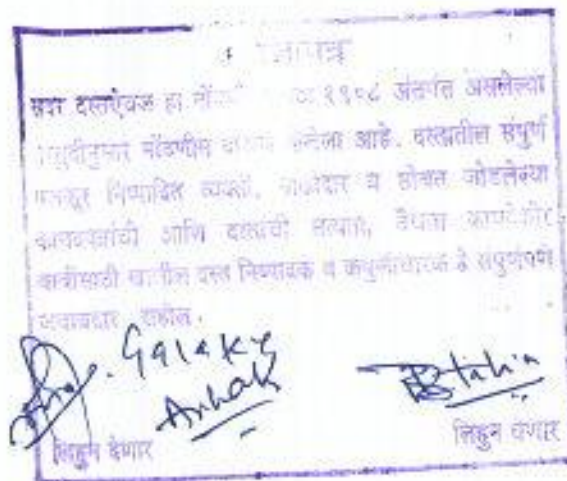 सदर दस्तऐवज हा नोंदणी १९०८ अंतर्गत असलेल्या
नोंदणीस आहे. दस्तातील संपूर्ण
मजकूर निष्पादित व्यक्ती, साक्षीदार व सोबत जोडलेल्या
कागदपत्रांची आणि दस्ताची सत्यता, वैधता कायदेशीर
बाबींसाठी खालील दस्त निष्पादक व कबुलीधारक हे संपूर्णपणे
जबाबदार राहील.
Galaxy
Ashok
लिहून देणार
लिहून घेणार